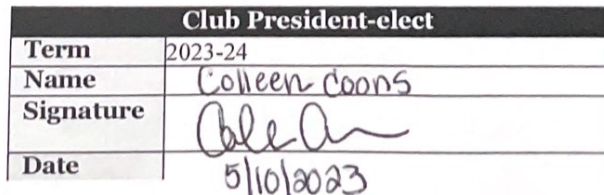 Club President-elect
Term 2023-24
Name Colleen Coons
Signature
Date 5/10/2023